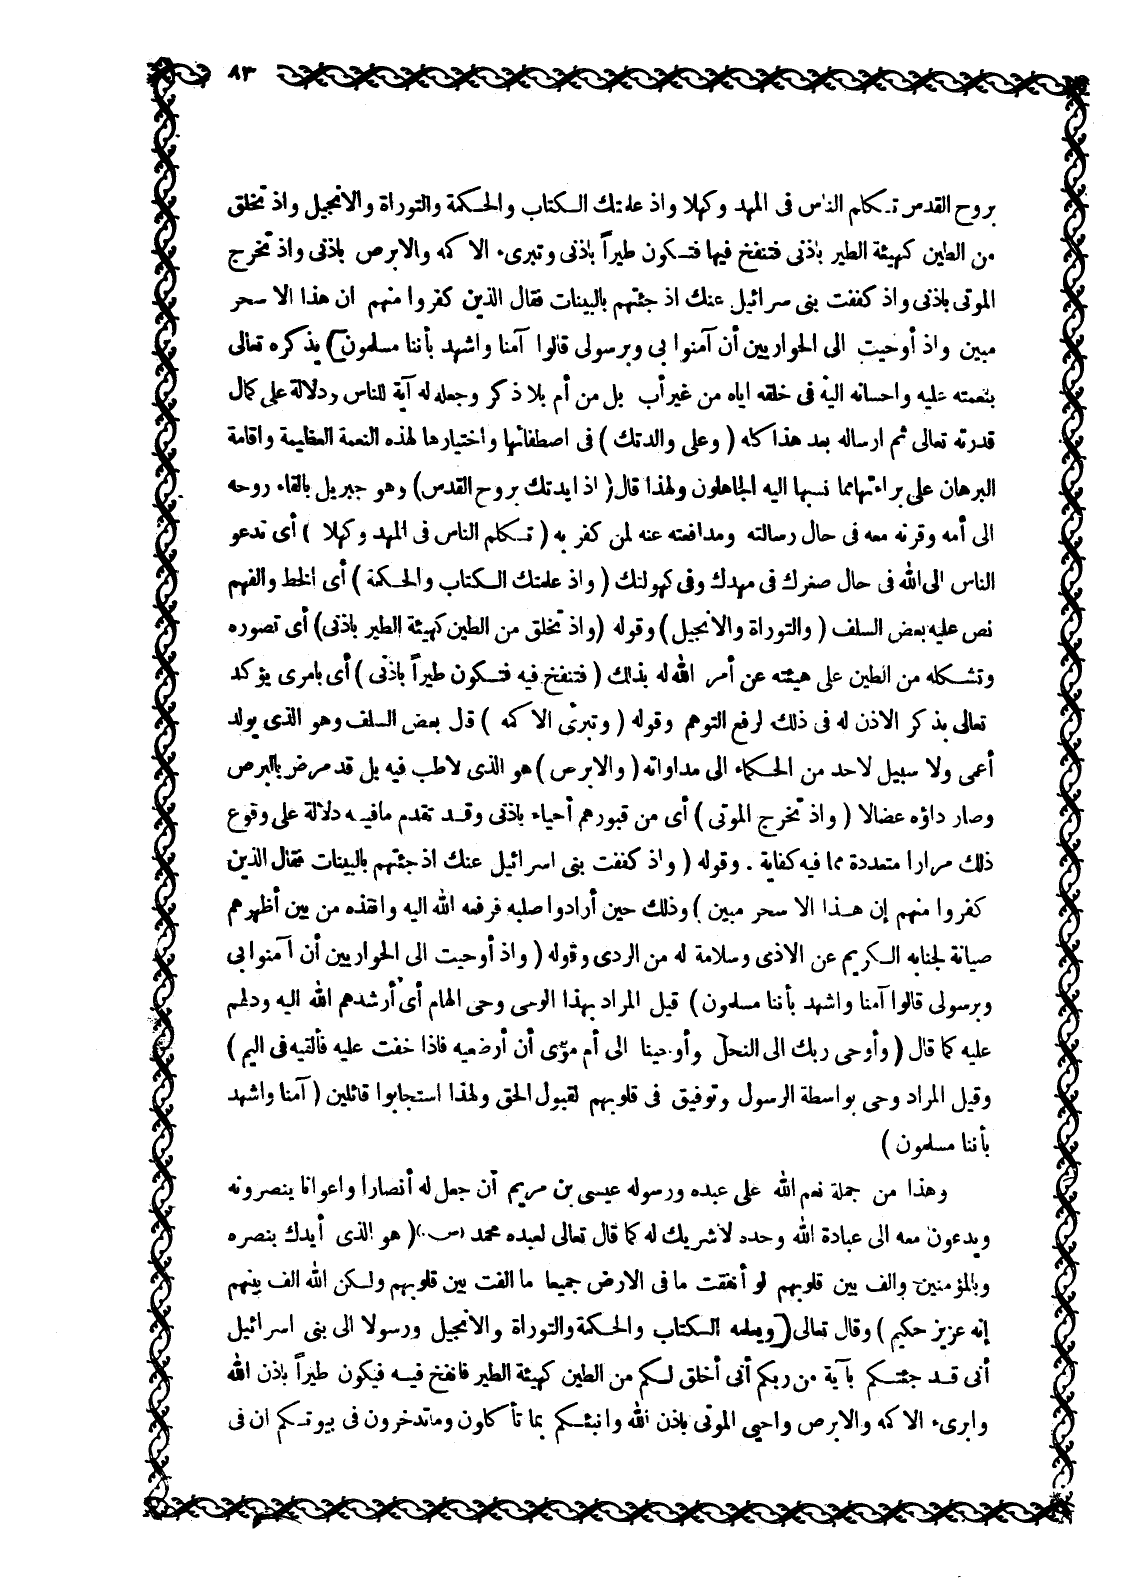 ٨٣
بروح القدس تـكلم الناس فى المهد وكهلا واذ علمتك الـكتاب والحـكمة والتوراة والانجيل واذ تخلق
من الطين كهيئة الطير باذنى فتنفخ فيها فتـكون طيراً باذنى وتبرىء الاكمه والابرص باذنى واذ تخرج
الموتى باذنى واذ كففت بنى سرائيل عنك اذ جئتهم بالبينات فقال الذين كفروا منهم ان هذا الا سحر
مبين واذ أوحيت الى الحواريين أن آمنوا بى وبرسولى قالوا آمنا واشهد بأننا مسلمون) يذكره تعالى
بنعمته عليه واحسانه اليه فى خلقه اياه من غير أب بل من أم بلا ذكر وجعله له آية للناس ودلالة على كمال
قدرته تعالى ثم ارساله بعد هذا كله ( وعلى والدتك ) فى اصطفائها واختيارها لهذه النعمة العظيمة واقامة
البرهان على براءتها مما نسبها اليه الجاهلون ولهذا قال ( اذ ايدتك بروح القدس) وهو جبريل بالقاء روحه
الى أمه وقرنه معه فى حال رسالته ومدافعته عنه لمن كفر به ( تـكلم الناس فى المهد وكهلا ) أى تدعو
الناس الى الله فى حال صغرك فى مهدك وفى كهولتك ( واذ علمتك الـكتاب والحـكمة ) أى الخط والفهم
نص عليه بعض السلف ( والتوراة والانجيل) وقوله (واذ تخلق من الطين كهيئة الطير باذنى) أى تصوره
وتشـكله من الطين على هيئته عن أمر الله له بذلك ( فتنفخ فيه فتـكون طيراً باذنى ) أى بامرى يؤكد
تعالى بذكر الاذن له فى ذلك لرفع التوهم وقوله ( وتبرئ الاكمه ) قل بعض السلف وهو الذى يولد
أعمى ولا سبيل لاحد من الحـكماء الى مداواته ( والابرص ) هو الذى لاطب فيه بل قد مرض بالبرص
وصار داؤه عضالا ( واذ تخرج الموتى ) أى من قبورهم أحياء باذنى وقـد تقدم مافيـه دلالة على وقوع
ذلك مرارا متعددة مما فيه كفاية . وقوله ( واذ كففت بنى اسرائيل عنك اذ جئتهم بالبينات فقال الذين
كفروا منهم إن هـذا الا سحر مبين ) وذلك حين أرادوا صلبه فرفعه الله اليه وانقذه من بين أظهرهم
صيانة لجنابه الـكريم عن الاذى وسلامة له من الردى وقوله ( واذ أوحيت الى الحواريين أن آمنوا بى
وبرسولى قالوا آمنا واشهد بأننا مسلمون ) قيل المراد بهذا الوحى وحى الهام أى أرشدهم الله اليه ودلهم
عليه كما قال ( وأوحى ربك الى النحل وأوحينا الى أم موسى أن أرضعيه فاذا خفت عليه فألقيه فى اليم )
وقيل المراد وحى بواسطة الرسول وتوفيق فى قلوبهم لقبول الحق ولهذا استجابوا قائلين ( آمنا واشهد
بأننا مسلمون )
وهذا من جملة نعم الله على عبده ورسوله عيسى بن مريم أن جعل له أنصارا واعوانا ينصرونه
ويدعون معه الى عبادة الله وحده لا شريك له كما قال تعالى لعبده محمد (س.) ( هو الذى أيدك بنصره
وبالمؤمنين والف بين قلوبهم لو أنفقت ما فى الارض جميعا ما الفت بين قلوبهم ولـكن الله الف بينهم
إنه عزيز حكيم ) وقال تعالى ( ويعلمه الـكتاب والحـكمة والتوراة والانجيل ورسولا الى بنى اسرائيل
أنى قـد جئتـكم بآية من ربكم أنى أخلق لـكم من الطين كهيئة الطير فانفخ فيـه فيكون طيراً باذن الله
وابرىء الاكمه والابرص واحيى الموتى باذن الله وانبئـكم بما تأكلون وماتدخرون فى بيوتـكم ان فى